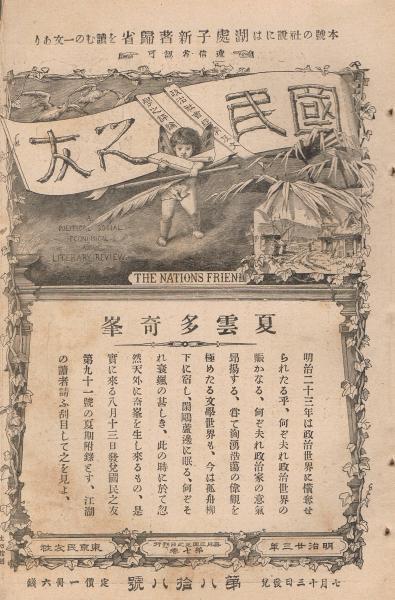 本號の社說には湖處子新著歸省を讀むの一文あり
遞信省認可
國民之友
A
POLITICAL SOCIAL
ECONOMICAL
AND
LITERARY REVIEW.
THE NATIONS FRIEND
夏雲多奇峯
明治二十三年は政治世界に攙奪せ
られたる乎、何ぞ夫れ政治世界の
賑かなる、何ぞ夫れ政治家の意氣
昂揚する、嘗て洶湧浩蕩の偉觀を
極めたる文學世界も、今は孤舟柳
下に宿し、閑鷗蘆邊に眠る、何ぞそ
れ衰颯の甚しき、此の時に於て忽
然天外に奇峯を生し來るもの、是
實に來る八月十三日發兌國民之友
第九十一號の夏期附錄とす、江湖
の讀者請ふ刮目して之を見よ、
明治廿三年
第七卷
東京民友社
七月十三日發兌
第八拾八號
定價一冊六錢